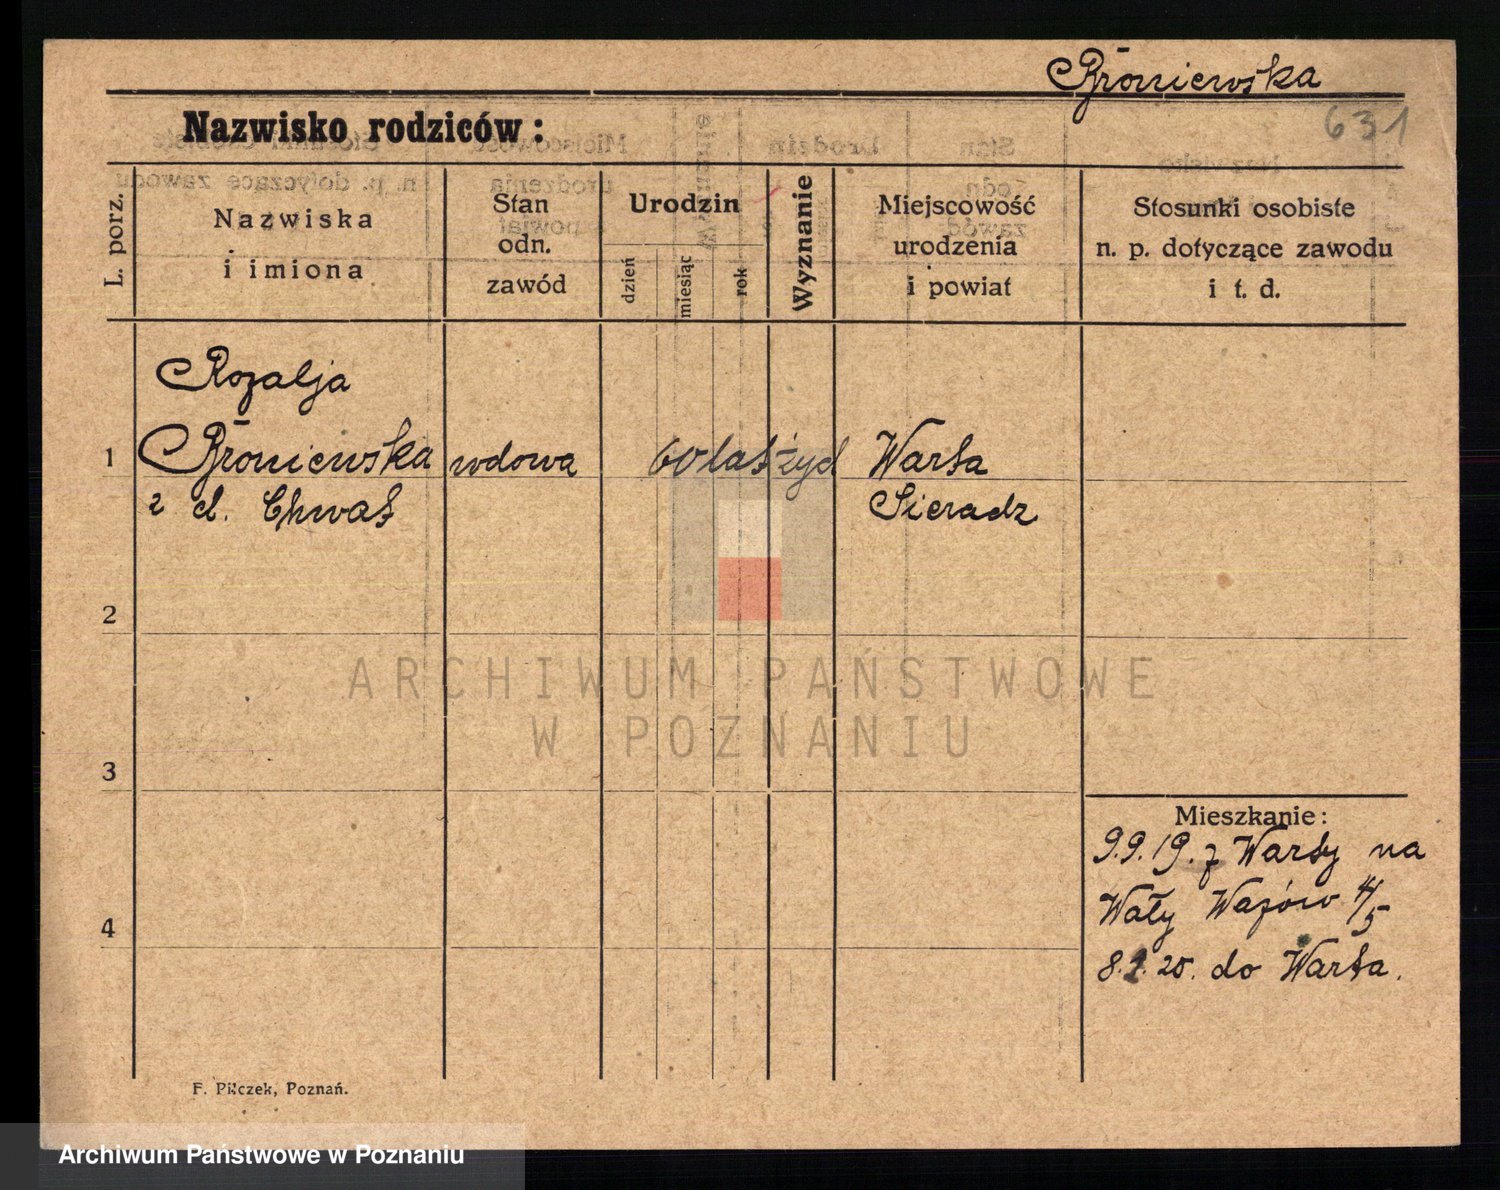 Broniewska
631
Nazwisko rodziców:
L. porz.
Nazwiska
i imiona
Stan
odn.
zawód
Urodzin
dzień
miesiąc
rok
Wyznanie
Miejscowość
urodzenia
i powiat
Stosunki osobiste
n. p. dotyczące zawodu
i t. d.
Rozalja
1 Broniewska wdowa 60 lat żyd Warta
z d. Chwat Sieradz
2
ARCHIWUM PAŃSTWOWE
W POZNANIU
3
Mieszkanie:
9.9.19. z Warty na
Wały Wazów 4/5
4
8. 20. do Warta.
F. Pilczek, Poznań.
Archiwum Państwowe w Poznaniu